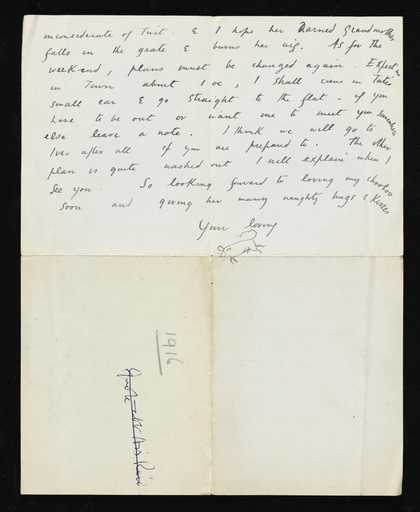 inconsiderate of Twit. & I hope her Darned Grandmother
falls in the grate & burns her wig. As for the
weekend, plans must be changed again. Expect me
in Town about 1 oc, I shall come in Tate's
small car & go straight to the flat - if you
have to be out or want me to meet you somewhere
else leave a note. I think we will go to
Ives after all if you are prepared to. The other
plan is quite washed out I will explain when I
see you. So looking forward to loving my
soon and giving her many naughty hugs & kisses
Your loving
1916